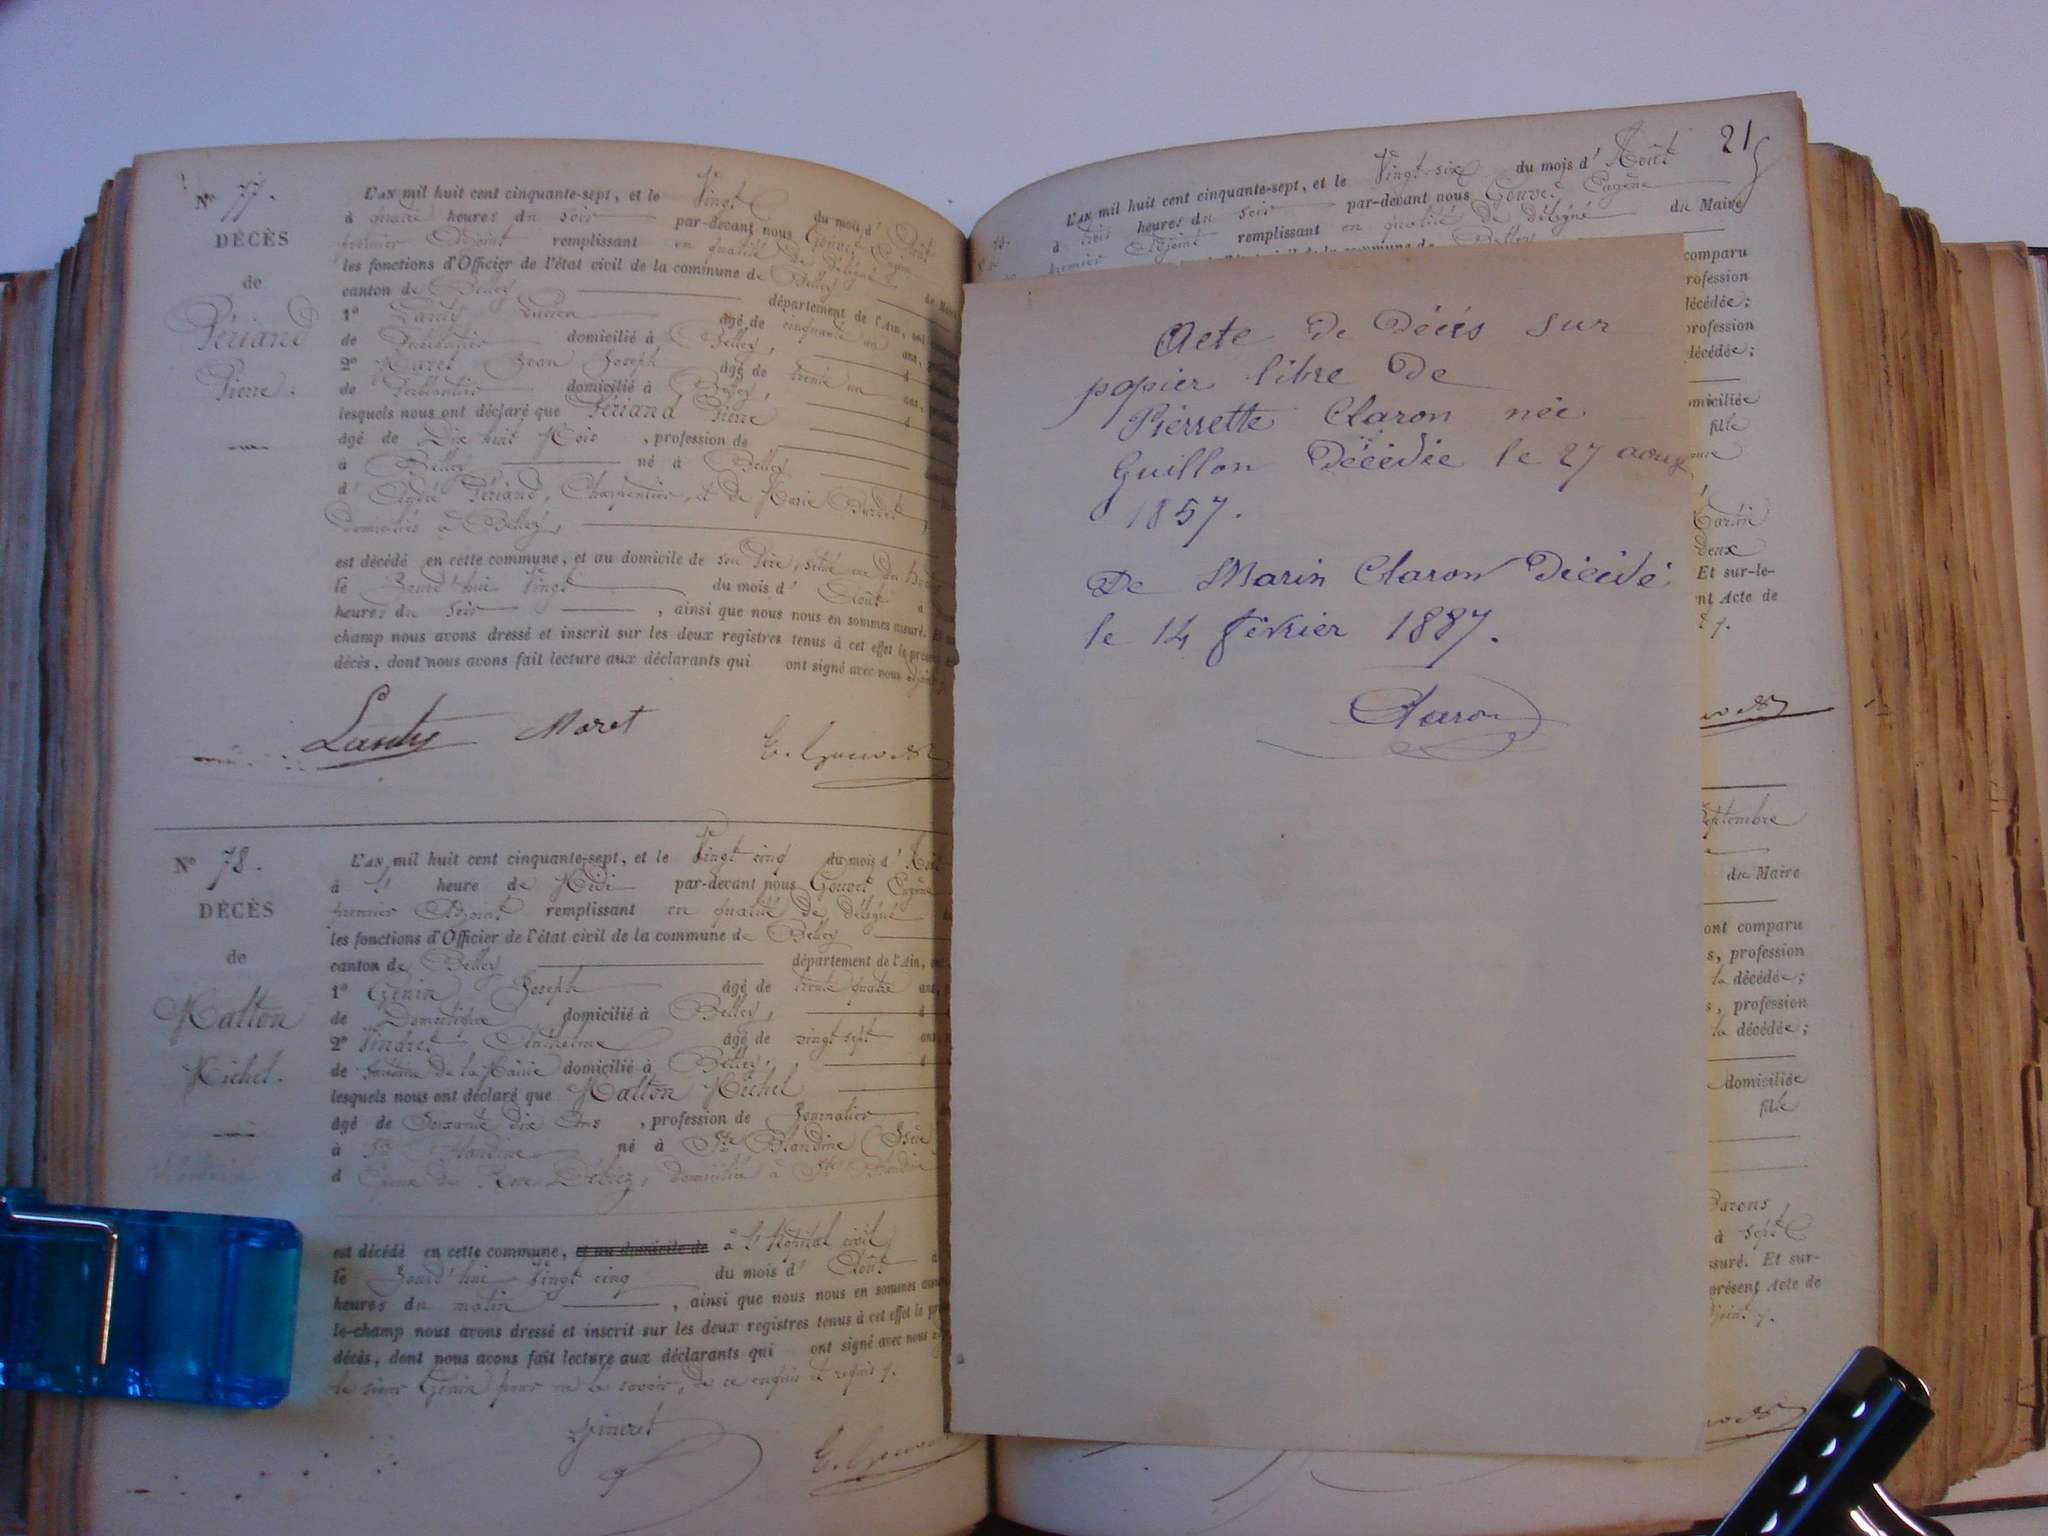 N° 77.
DÉCÈS
de
Périand
Pierre.
L'AN mil huit cent cinquante-sept, et le Vingt du mois d' Août
à quatre heures du soir par-devant nous Gouvet Eugène
premier Adjoint remplissant en qualité de délégué du Maire
les fonctions d'Officier de l'état civil de la commune de Belley
canton de Belley département de l'Ain, ont
1° Lanty Lucien âgé de cinquante un ans,
de Ferblantier domicilié à Belley,
2° Maret Jean Joseph âgé de trente un ans,
de Ferblantier domicilié à Belley,
lesquels nous ont déclaré que Périand Pierre
âgé de Dix huit Mois, profession de
à Belley né à Belley
d' Périand, Charpentier, et de Marie
domiciliés à Belley,
est décédé en cette commune, et au domicile de son Père, situé rue du
le Jourd'hui Vingt du mois d' Août à
heures du soir, ainsi que nous nous en sommes assuré. Et
champ nous avons dressé et inscrit sur les deux registres tenus à cet effet le présent
décès, dont nous avons fait lecture aux déclarants qui ont signé avec nous
Lanty Maret E. Gouvet
N° 78.
DÉCÈS
de
Matton
Michel.
L'AN mil huit cent cinquante-sept, et le Vingt cinq du mois d' Août
à l' heure de Midi par-devant nous Gouvet Eugène
premier Adjoint remplissant en qualité de délégué
les fonctions d'Officier de l'état civil de la commune de Belley
canton de Belley département de l'Ain,
1° Génin Joseph âgé de trente quatre ans,
de Domestique domicilié à Belley,
2° Pinéret Anthelme âgé de vingt sept ans,
de de la Mairie domicilié à Belley,
lesquels nous ont déclaré que Matton Michel
âgé de Soixante dix ans, profession de Journalier
à Ste Blandine né à Ste Blandine (Isère
d Époux de Rose domiciliée à Ste Blandine
est décédé en cette commune, et au domicile de à l'Hôpital civil
le Jourd'hui Vingt cinq du mois d' Août à
heures du matin, ainsi que nous nous en sommes assuré
le-champ nous avons dressé et inscrit sur les deux registres tenus à cet effet le
décès, dont nous avons fait lecture aux déclarants qui ont signé avec nous
le sieur Génin pour ne le savoir, de ce enquis et requis
Pineret E. Gouvet
21
L'AN mil huit cent cinquante-sept, et le Vingt-six du mois d' Août
à trois heures du soir par-devant nous Gouvet Eugène
premier Adjoint remplissant en qualité de délégué du Maire
Belley
comparu
profession
décédée;
profession
décédée;
domiciliée
fille
Acte de Décès sur
papier libre de
Pierrette Claron née
Guillon Décédée le 27 aout
1857.
De Marin Claron Décédé
le 14 février 1887.
Claron
deux
Et sur-le-
Acte de
Septembre
du Maire
ont comparu
s, profession
la décédée;
s, profession
la décédée;
domiciliée
fille
Barons,
à sept
assuré. Et sur-
présent Acte de